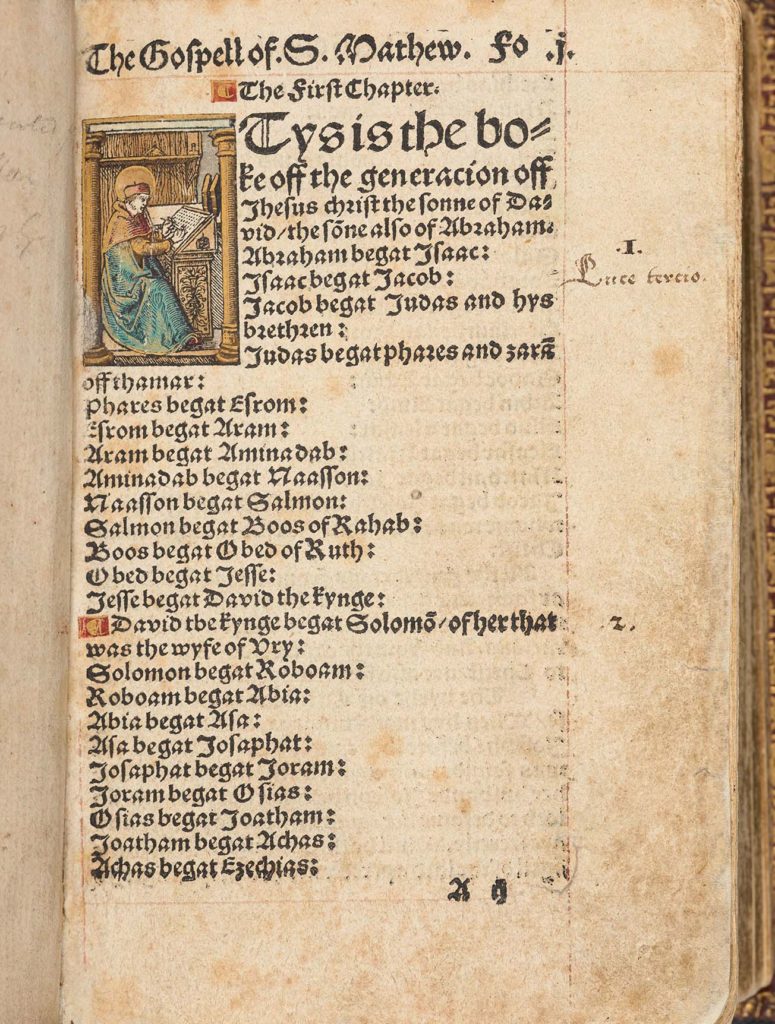 The Gospell of. S. Mathew. Fo .j.
The First Chapter.
Tys is the bo=
ke off the generacion off
Jhesus christ the sonne of Da=
vid/the sõne also of Abraham.
Abraham begat Isaac:
Isaac begat Jacob:
Jacob begat Judas and hys
brethren:
Judas begat phares and zarã
off thamar:
Phares begat Esrom:
Esrom begat Aram:
Aram begat Aminadab:
Aminadab begat Naasson:
Naasson begat Salmon:
Salmon begat Boos of Rahab:
Boos begat Obed of Ruth:
Obed begat Jesse:
Jesse begat David the kynge:
David the kynge begat Solomõ/of her that
was the wyfe of Vry:
Solomon begat Roboam:
Roboam begat Abia:
Abia begat Asa:
Asa begat Josaphat:
Josaphat begat Joram:
Joram begat Osias:
Osias begat Joatham:
Joatham begat Achas:
Achas begat Ezechias:
A ij
.I.
Luce tercio.
2.